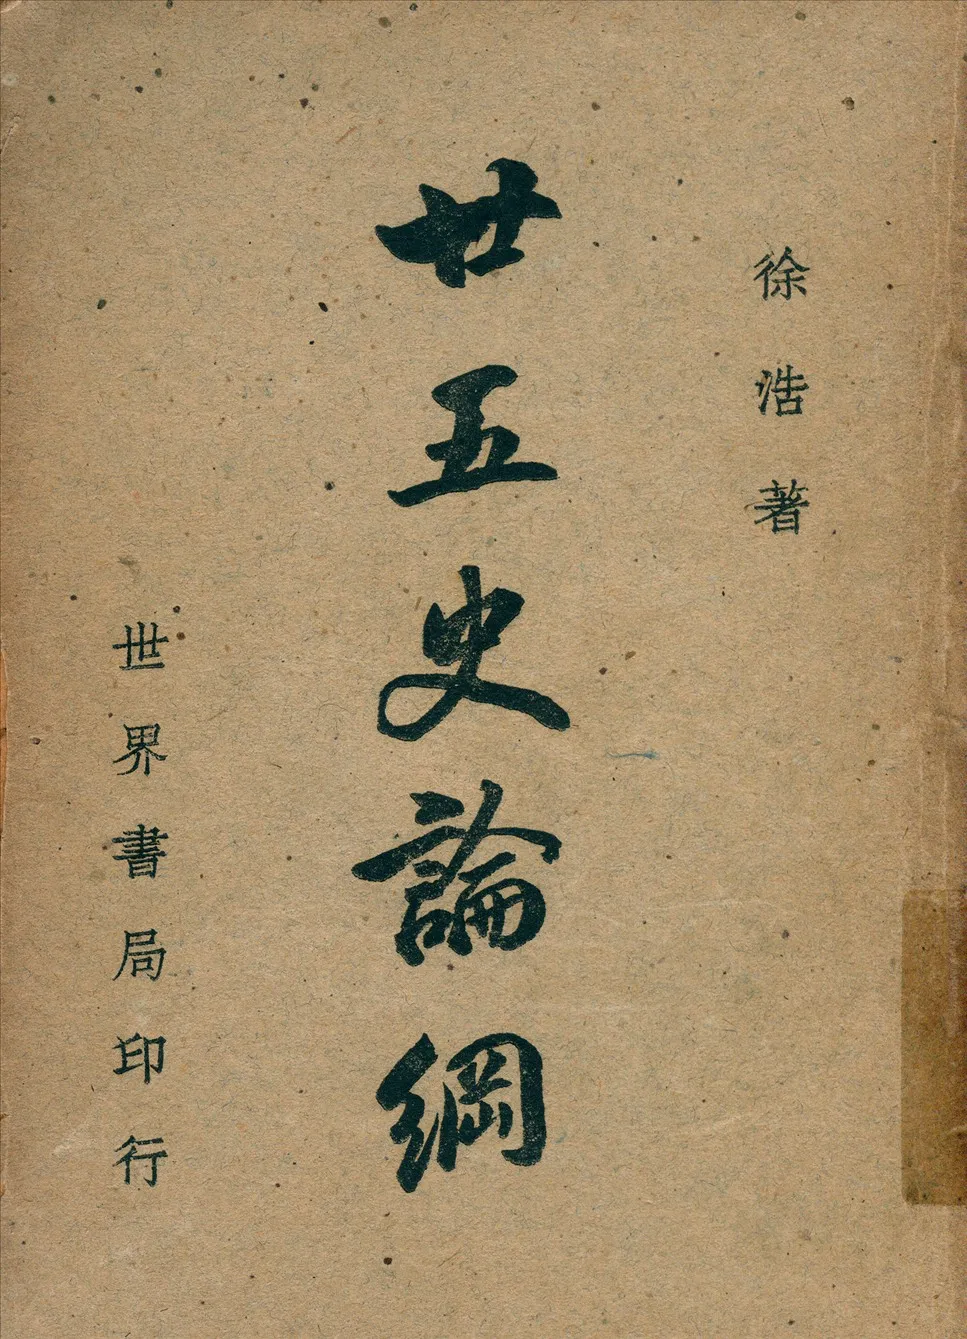 徐浩著
廿五史論綱
世界書局印行